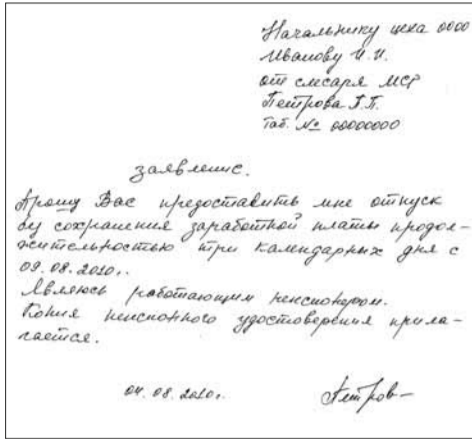 Начальнику цеха 0000
Иванову И.И.
от слесаря МСР
Петрова П.П.
Таб. № 00000000
заявление.
Прошу Вас предоставить мне отпуск
без сохранения заработной платы продол-
жительностью три календарных дня с
09.08.2010г.
Являюсь работающим пенсионером.
Копия пенсионного удостоверения прила-
гается.
04.08.2010г. Петров